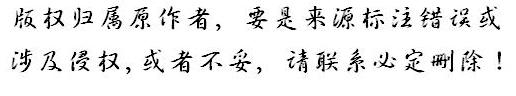 版权归属原作者，要是来源标注错误或
涉及侵权，或者不妥，请联系必定删除！